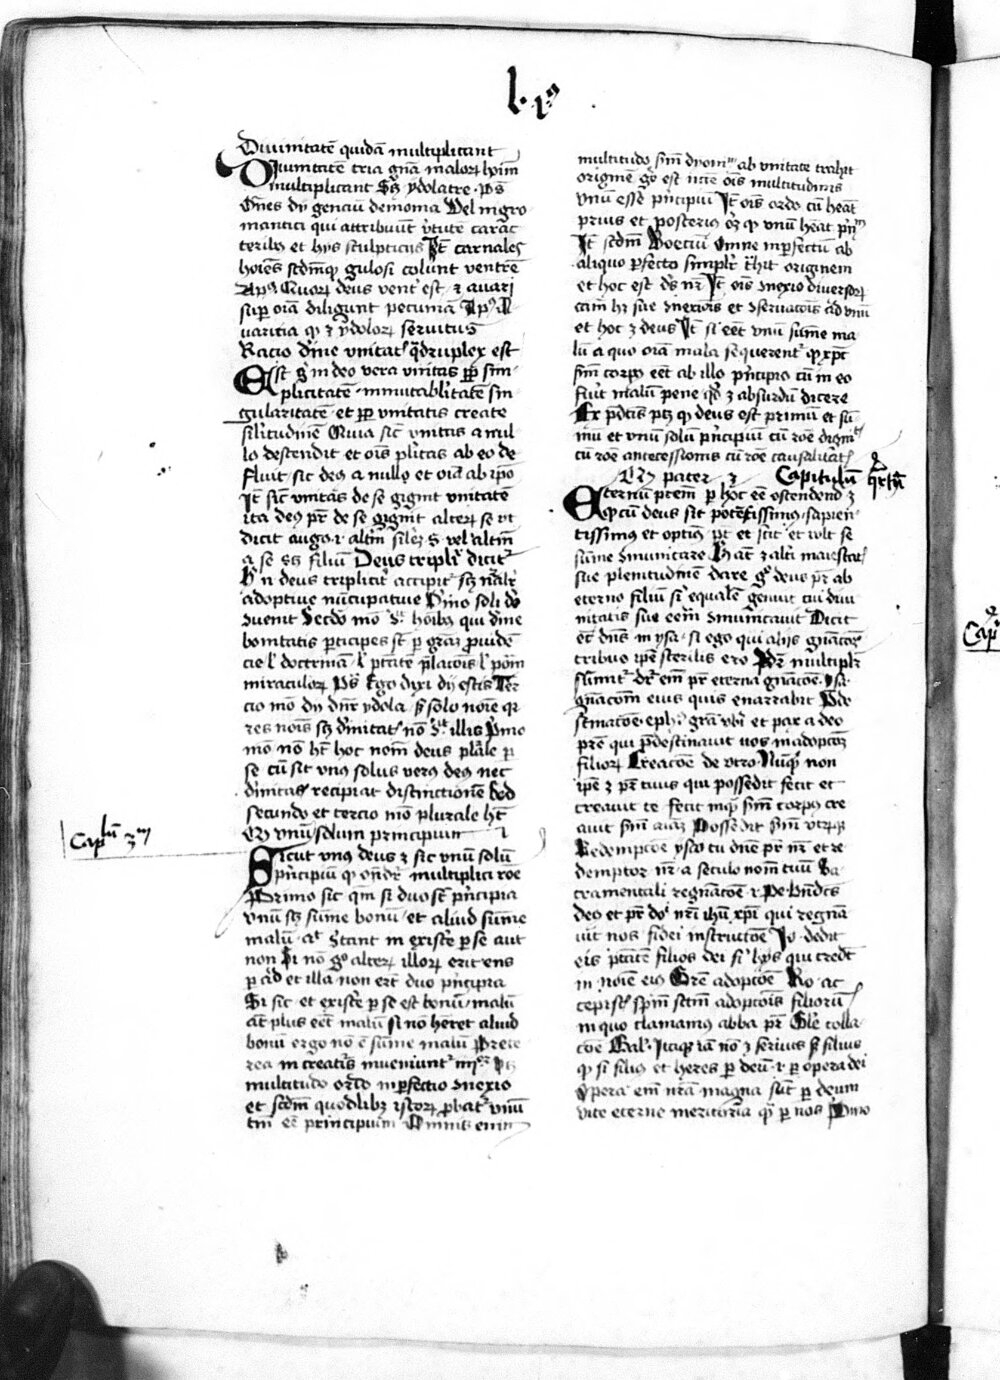 l. 1us
Diuinitatē quidā multiplicant
Diuinitatē tria gn̄a malorꝫ hoīm
multiplicant Sꝫ ydolatre · ps̄
Om̄es dij genciū demonia Vel nigro
mantici qui attribuūt v̓tutē carac
teribꝫ et hijs sculpticijs It̄ carnales
hoiēs scd̄mqꝫ gulosi colunt ventrē
Apꝰ Quorꝫ deus vent̓ est · ⁊ auari
sup̄ oīa diligunt pecuniā Apꝰ A
uaritia qͥ ꝫ ydolorꝫ seruitus
Racio diīne vnitatꝭ qͣdruplex est
Est gͦ in deo vera vnitas ꝓꝑ sim
plicitatē · inmutabl̓itatē sin
gularitatē · et ꝓꝑ vnitatis create
sil̓itudinē Quia sic̄ vnitas a nul
lo descendit et oīs pl̓itas ab eo de
fluit · sic deꝰ a nullo et oīa ab ip̄o
It̄ sic̄ vnitas de se gignit vnitatē
ita deꝰ pr̄ de se gignit alterꝫ se vt
dicit augꝰ · r altm̄ sil̓eꝫ s · vel altm̄
a se sꝫ filiū Deus tripl̓r dicit᷑
H̄ n deus triplicit̓ accipit᷑ sꝫ nāl̓r
adoptiue nūcupatiue Pͥmo soli dō
ꝯuenit Secdō mō d̄r hoībꝫ qui diīne
bonitatis ꝑticipes sūt ꝑ gr̄aꝫ ꝓuidē
cie l̓ doctrinā l̓ ptātē p̄lacōis l̓ ꝓōm
miraculorꝫ ps̄ Ego dixi dij estis Ter
cio mō dij dn̄r ydola · sꝫ solo noīe qꝛ
res nois sꝫ diīnitat̓ nō d̄r illis Pͥmo
mō nō hꝫ hoc nom̄ deus pl̄ale ꝑ
se cū sit vnꝰ solus verꝰ deꝰ nec
diīnitas recipiat distinctionē sed
secundo et tercio mō plurale hꝫ
Qꝫ vnū solum principium
Capl̄ū 3m
Sicut vnꝰ deus ꝫ sic vnū solū
pͥncipiū qͥ on̄dr̄ multiplici roē
Primo sic qm̄ si duo st̄ pͥncipia
vnū sꝫ sūme bonū · et aliud sūme
malū · at̄ ꝯstant in existē ꝑ se aut
non Si nō gͦ alterꝫ illorꝫ erit ens
ꝑ aīd et illa non ert̄ duo pͥncipia
Si sic · et existē ꝑ se est bonū · malū
at̄ plus eēt malū si nō hēret aliud
bonū ergo nō ē sūme malū Prete
rea in creatis inueniunt᷑ iiijor
multitudo ordo inꝑfectio ꝯnexio
et scd̄m quodlibꝫ istorꝫ ꝓbat᷑ vnū
tm̄ eē principium Omnis enim
multitudo sim̄ dyon᷑ ab vnitate trahit
originē gͦ est in̄ē oīs multitudinis
vnū esse pͥncipiū It̄ oīs ordo cū hēat
prius et posterius oꝫ qͥ vnū hēat pͥnm
It̄ scdm̄ Boeciū Omne inꝑfectū ab
aliquo ꝑfecto simpl̓r trhit originem
et hoc est dꝰ nr̄ It̄ oīs ꝯnexio diuersorꝫ
cām hꝫ sue ꝯnexiōis et ꝯseruacōis aīd vnū
et hoc ꝫ deus It̄ si eēt vnū sūme ma
lū a quo oīa mala sequerent᷑ qͥ xpc̄
sim̄ corpꝰ eēt ab illo pͥncipio cū in eo
fiūt malū pene qd̄ ꝫ absurdū dicere
Ex p̄dictis ptꝫ qͥ deus est primū et sū
mū et vnū solū pͥncipiū cū roē dignit̓
cū roē antecessionis cū roē causalitatꝭ
Qꝫ pater · ꝫ Capitulū qͣrtū
Eternū ptem̄ ꝑ hoc eē ostendend ꝫ
qͥ cū deus sit potētissimꝰ · sapien
tissimꝰ et optimꝰ pt̄ et scit et vult se
sūme ꝯmunicare
sue plenitudinē dare gͦ deus pr̄ ab
eterno filiū sͥ equalē genuit cui diui
nitatis sue eēm ꝯmunicauit Dicit
et dn̄s in ysa · si ego qui alijs gnācōeꝫ
tribuo ip̄e sterilis ero Pr̄ multipl̓r
sumit᷑ dr̄ em̄ pr̄ eterna gnācōe · ysa
gnācōem eius quis enarrabit Pͬde
stinacōe · ephͥ grā vob̄ et pax a deo
prē qui p̄destinauit uos in adopcoēꝫ
filiorꝫ Creacōe de vtro · Nūqͥd non
ip̄e ꝫ pr̄ tuus qui possedit fecit et
creauit te fecit inqͥ sim̄ corpꝰ cre
auit sim̄ aīaꝫ Possedit sim̄ vtrūqꝫ
Redempcōe ysa tu dn̄e pr̄ nr̄ et re
demptor nr̄ a seculo nom̄ tuū Sa
cramentali regn̄acōe · r Pe · Bn̄dcs̄
deꝰ et pr̄ dn̄i nr̄i ihū xp̄i qui regn̄a
uit nos · fidei instructiōe Io · dedit
eis ptātē filios dei fi̓ hijs qui credt̄
in noīe eiꝰ Gr̄e adopcōe Ro · ac
cepistꝭ spm̄ sctm̄ adopcōis filiorū
in quo clamamꝰ abba pr̄ Gl̓e colla
cōe Gal̓ · Itaqꝫ iā nō ꝫ seruus sꝫ filius
qͥ si filiꝰ et heres ꝑ deū · r ꝑ opera dei
Opera em̄ nr̄a magna sūt ꝑ deum
vite eterne meritoria qͥ ꝑ nos Pͥmo
Cap